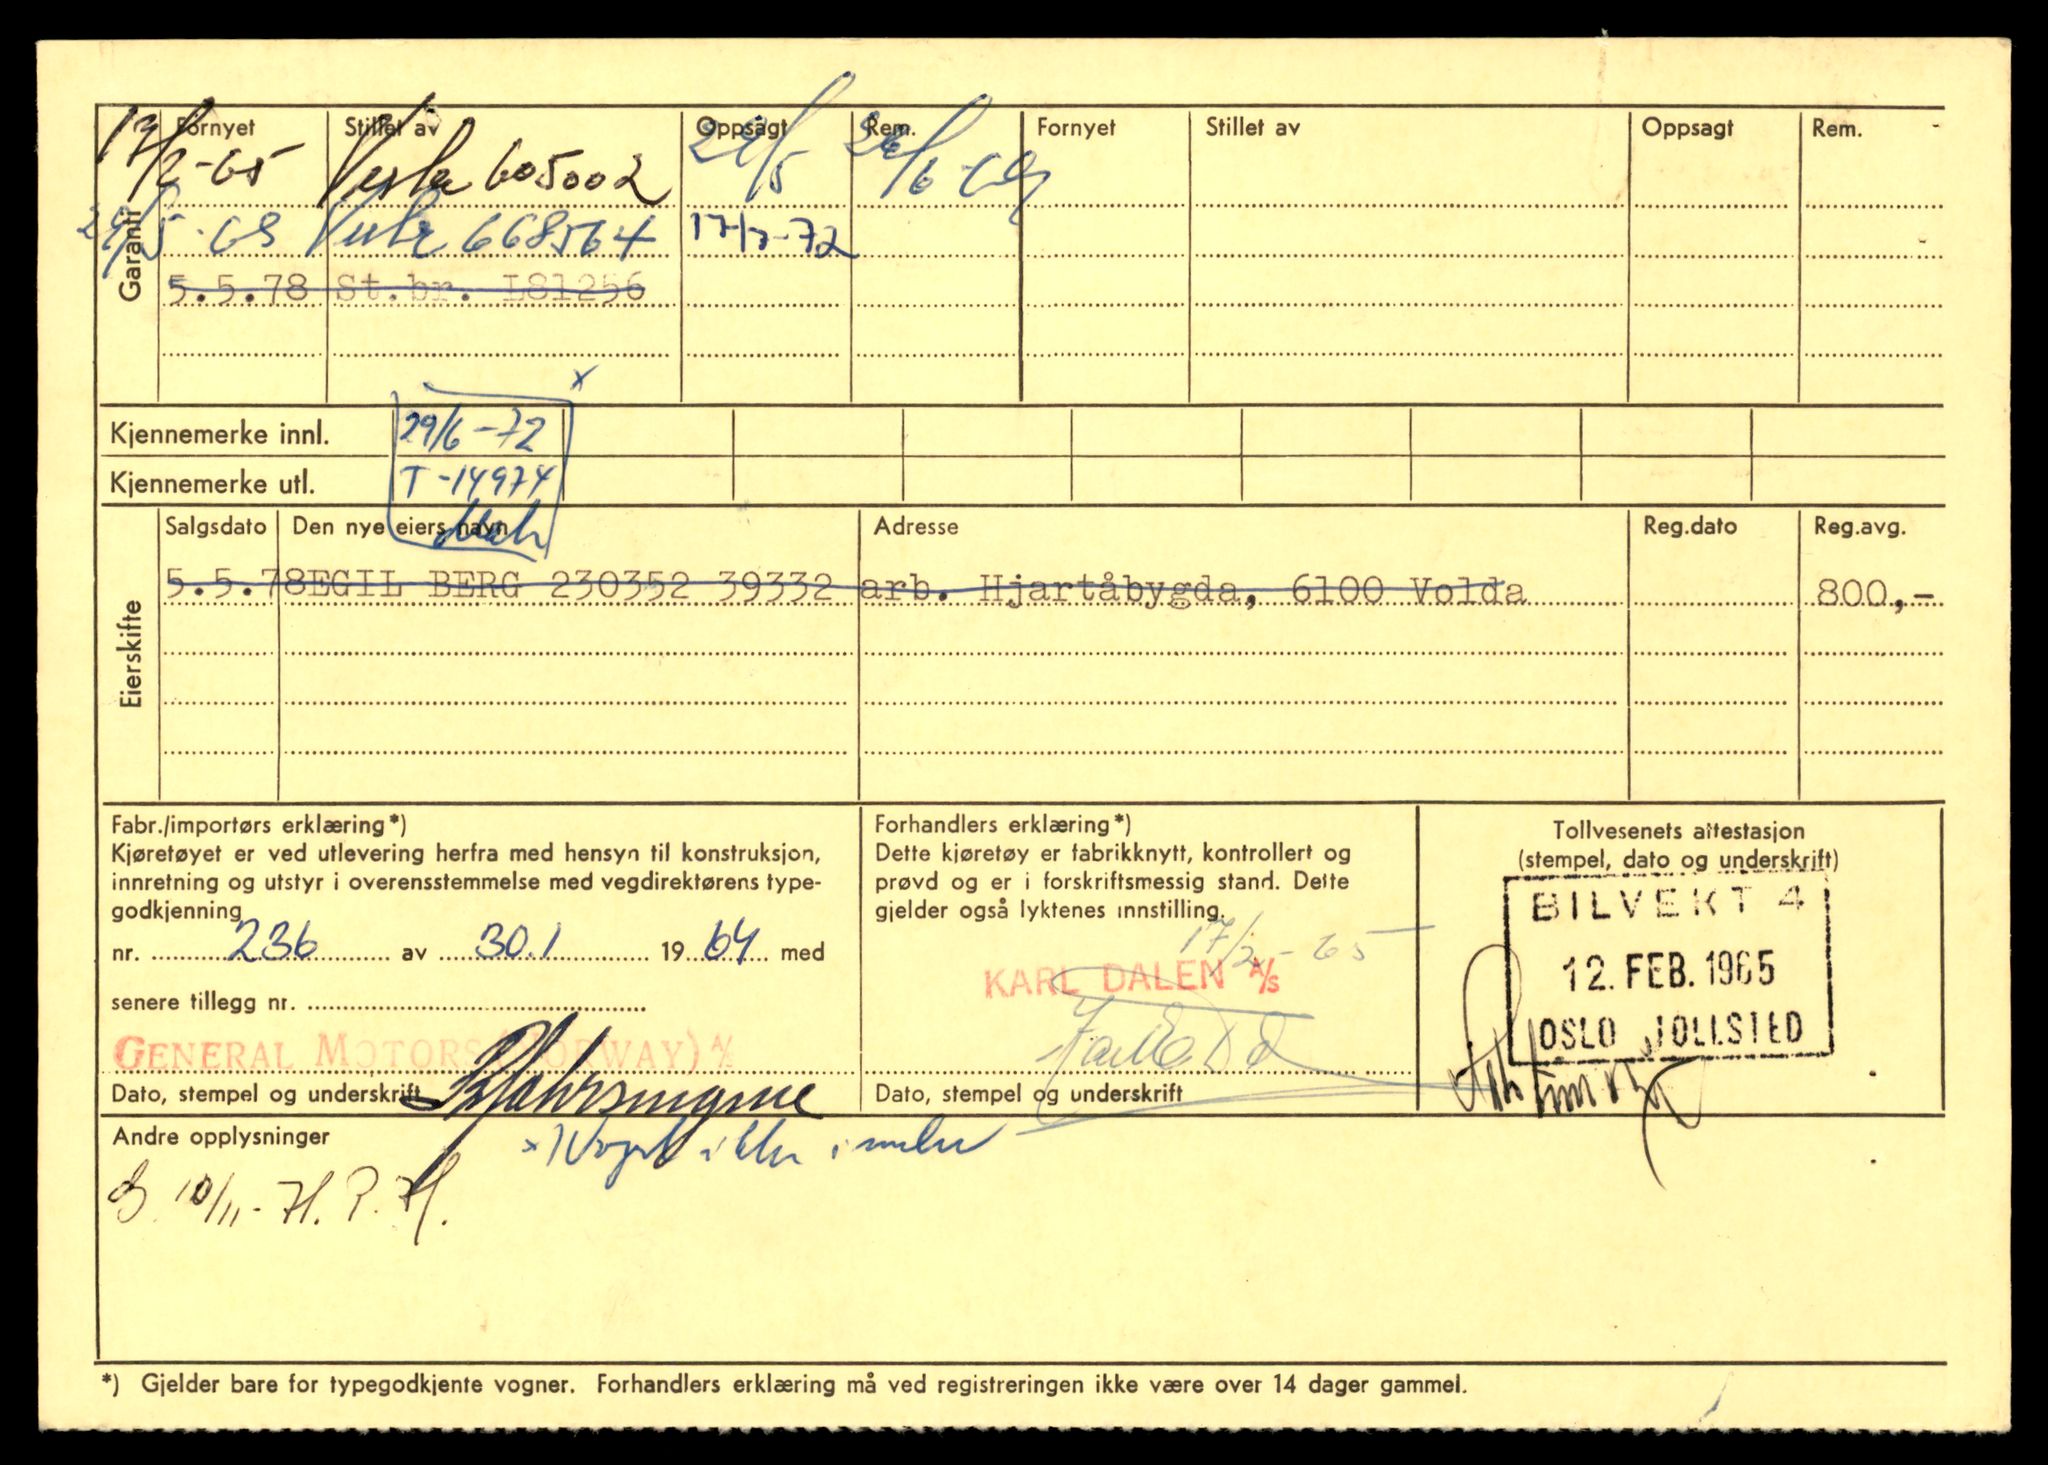 Garanti
Fornyet Stillet av Oppsagt Rem. Fornyet Stillet av Oppsagt Rem.
17/2-65 Vesta 605002 22/5 26/6-68
29/5-68 668564 17/7-72
5.5.78 St.br. L81256
x
Kjennemerke innl. 29/6-72
Kjennemerke utl. T-14974
Eierskifte
Salgsdato Den nye eiers navn Adresse Reg.dato Reg.avg.
5.5.78 EGIL BERG 230352 39332 arb. Hjartåbygda, 6100 Volda 800,-
Fabr./importørs erklæring*)
Kjøretøyet er ved utlevering herfra med hensyn til konstruksjon,
innretning og utstyr i overensstemmelse med vegdirektørens type-
godkjenning
nr. 236 av 30.1 1964 med
senere tillegg nr.
GENERAL MOTORS (NORWAY) A/S
Dato, stempel og underskrift
Forhandlers erklæring*)
Dette kjøretøy er fabrikknytt, kontrollert og
prøvd og er i forskriftsmessig stand. Dette
gjelder også lyktenes innstilling.
17/2-65
KARL DALEN A/S
Dato, stempel og underskrift
Tollvesenets attestasjon
(stempel, dato og underskrift)
BILVEKT 4
12. FEB. 1965
OSLO TOLLSTED
Andre opplysninger
x) Vogst ikke i
10/11- H.P.H.
*) Gjelder bare for typegodkjente vogner. Forhandlers erklæring må ved registreringen ikke være over 14 dager gammel.